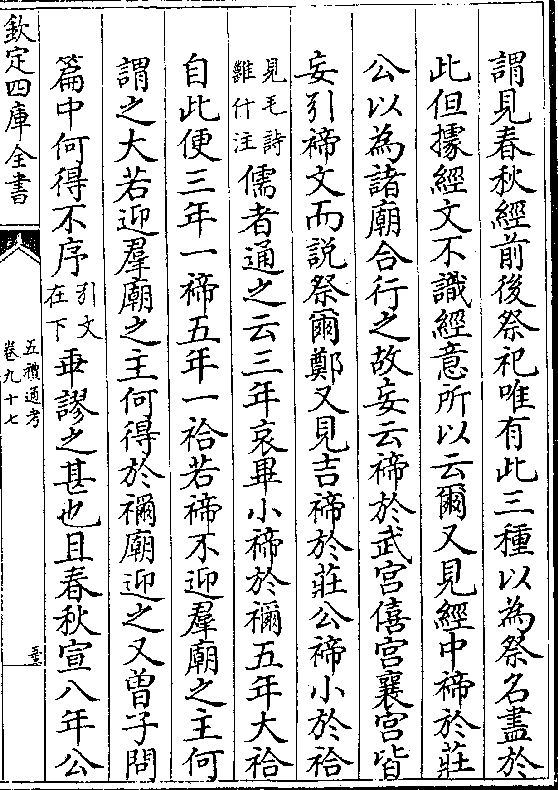 謂見春秋經前後祭祀唯有此三種以為祭名盡於
此但據經文不識經意所以云爾又見經中禘於莊
公以為諸廟合行之故妄云禘於武宮僖宮襄宮皆
妄引禘文而説祭爾鄭又見吉禘於莊公禘小於祫
見毛詩
雝什注
儒者通之云三年哀畢小禘於禰五年大祫
自此便三年一禘五年一祫若禘不迎羣廟之主何
謂之大若迎羣廟之主何得於禰廟迎之又曽子問
篇中何得不序
引文
在下
乖謬之甚也且春秋宣八年公
欽定四庫全書
五禮通考
卷九十七